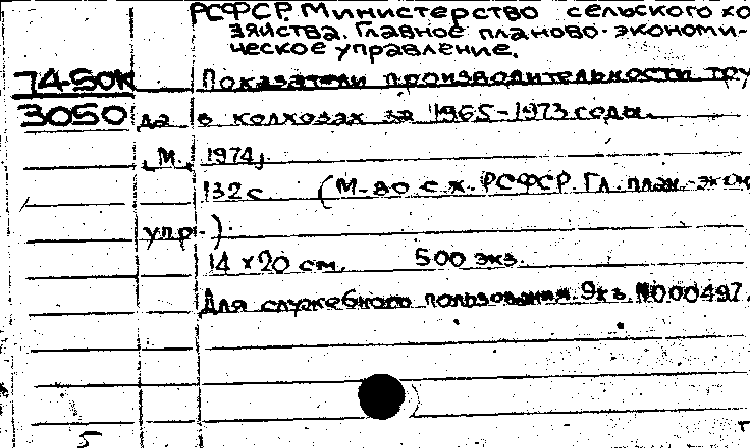 РСФСР. Министерство сельского хо
зяйства. Главное планово-экономи-
ческое управление.
74-50к Показатели производительности тру
3050 да в колхозах за 1965-1973 годы.
М. 1974.
132 с (М-во с.х. РСФСР. Гл. план.-экон
упр.)
14 x 20 см. 500 экз.
Для служебного пользования. Экз. №000497.
5